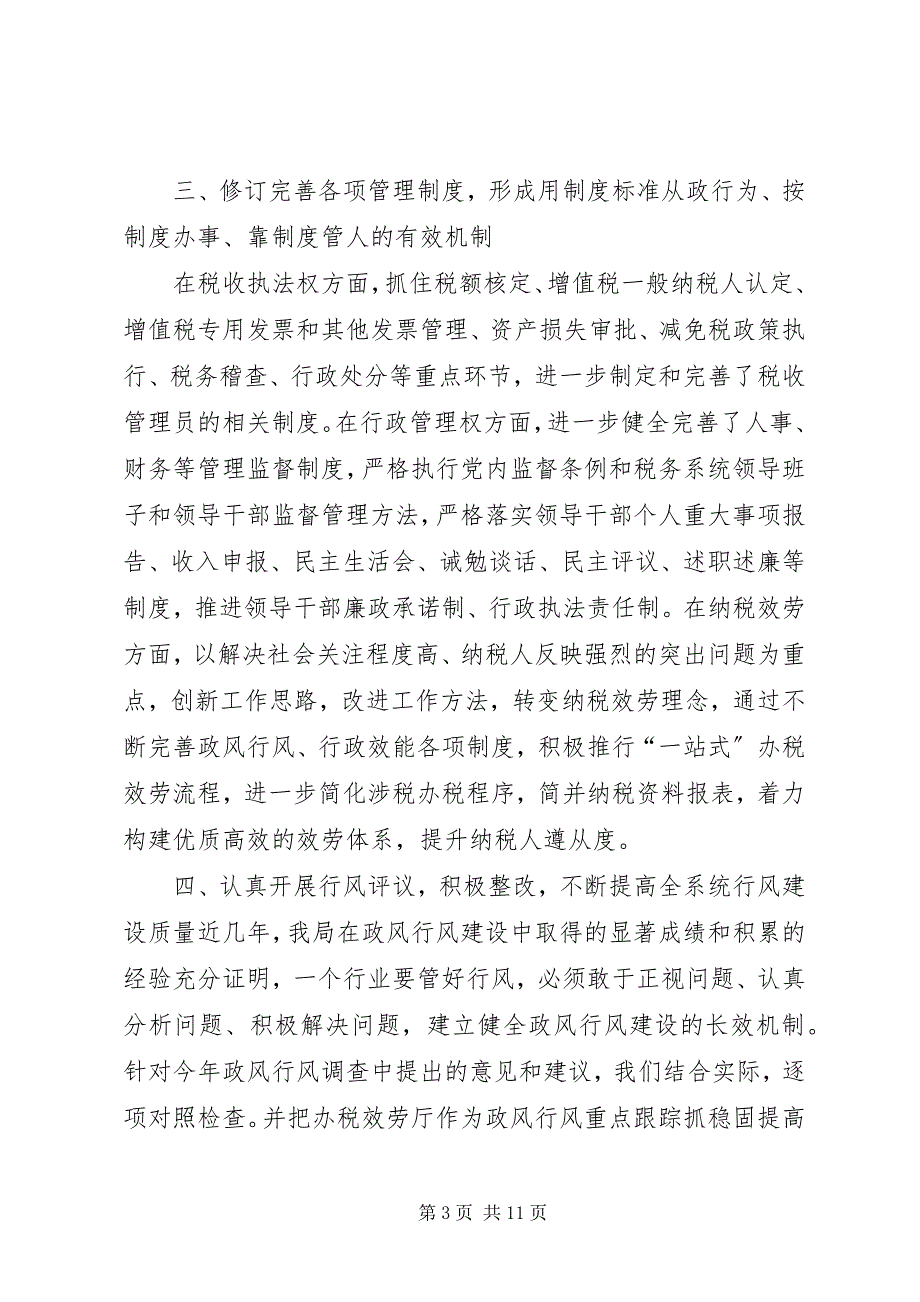 三、修订完善各项管理制度，形成用制度标准从政行为、按
制度办事、靠制度管人的有效机制
在税收执法权方面，抓住税额核定、增值税一般纳税人认定、
增值税专用发票和其他发票管理、资产损失审批、减免税政策执
行、税务稽查、行政处分等重点环节，进一步制定和完善了税收
管理员的相关制度。在行政管理权方面，进一步健全完善了人事、
财务等管理监督制度，严格执行党内监督条例和税务系统领导班
子和领导干部监督管理方法，严格落实领导干部个人重大事项报
告、收入申报、民主生活会、诫勉谈话、民主评议、述职述廉等
制度，推进领导干部廉政承诺制、行政执法责任制。在纳税效劳
方面，以解决社会关注程度高、纳税人反映强烈的突出问题为重
点，创新工作思路，改进工作方法，转变纳税效劳理念，通过不
断完善政风行风、行政效能各项制度，积极推行“一站式〞办税
效劳流程，进一步简化涉税办税程序，简并纳税资料报表，着力
构建优质高效的效劳体系，提升纳税人遵从度。
四、认真开展行风评议，积极整改，不断提高全系统行风建
设质量近几年，我局在政风行风建设中取得的显著成绩和积累的
经验充分证明，一个行业要管好行风，必须敢于正视问题、认真
分析问题、积极解决问题，建立健全政风行风建设的长效机制。
针对今年政风行风调查中提出的意见和建议，我们结合实际，逐
项对照检查。并把办税效劳厅作为政风行风重点跟踪抓稳固提高
第 3 页 共 11 页